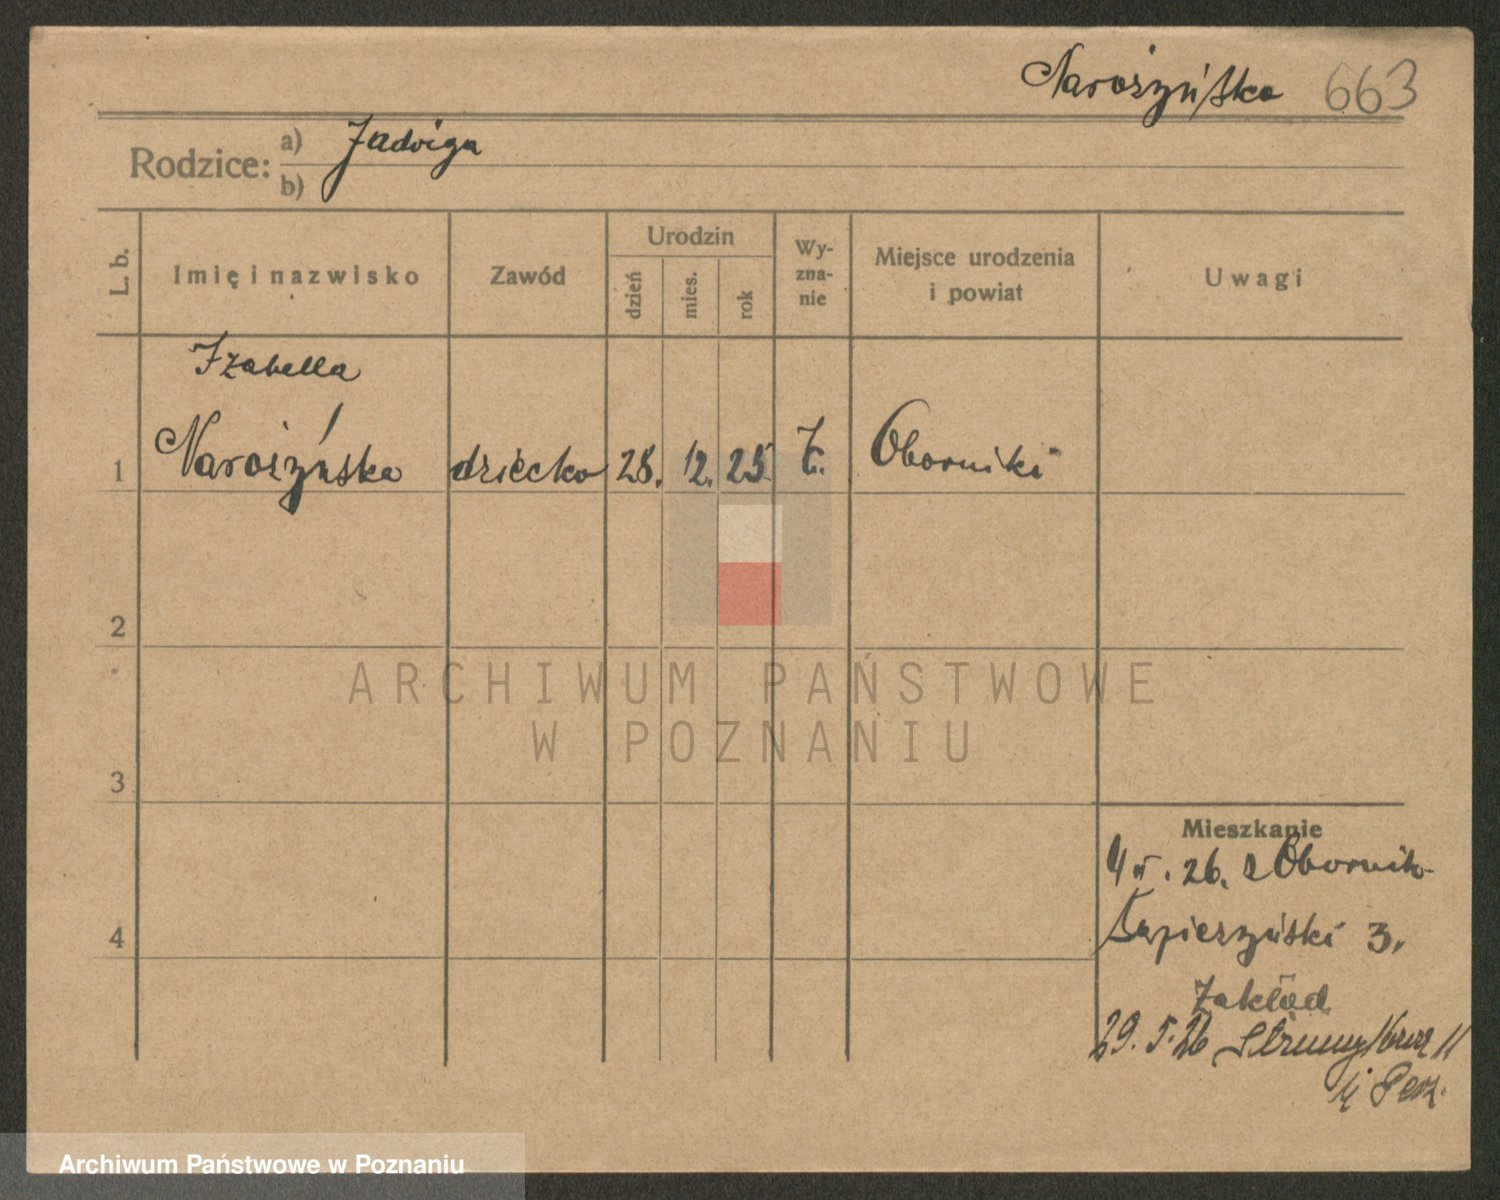 Narożyńska 663
Rodzice: a) Jadwiga
b)
L. b. Imię i nazwisko Zawód Urodzin dzień mies. rok Wy-zna-nie Miejsce urodzenia i powiat Uwagi
Izabella
1 Narożyńska dziecko 28. 12. 25. Oborniki
2
ARCHIWUM PAŃSTWOWE
W POZNANIU
3
Mieszkanie
26. z Obornik
4
3.
Zakład
29. 5. 26
Archiwum Państwowe w Poznaniu